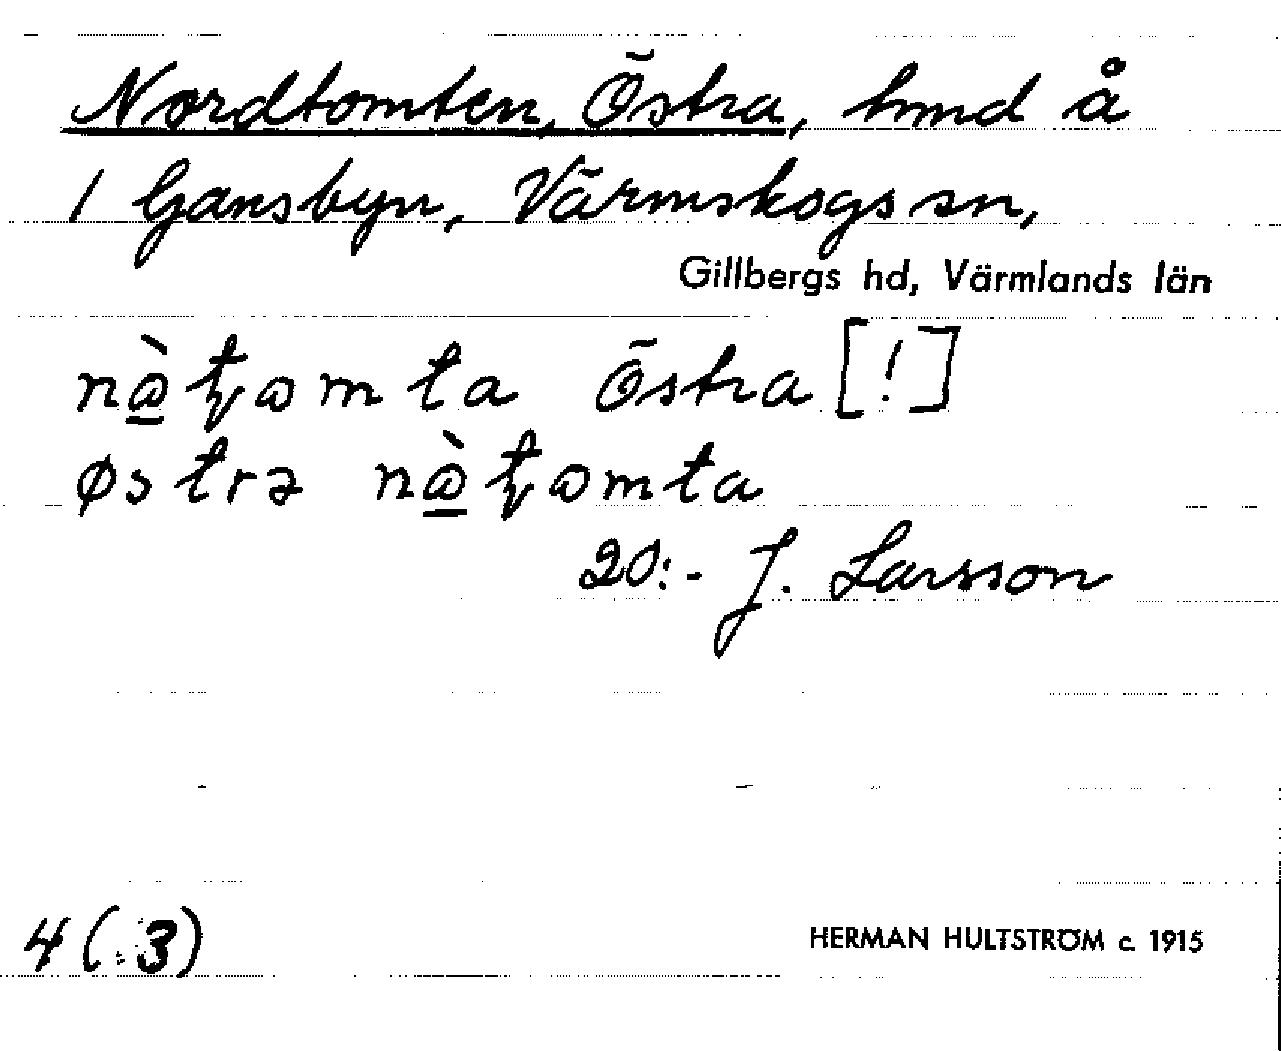 Nordtomten, Östra, hmd å
1 Gansbyn, Värmskogs sn,
Gillbergs hd, Värmlands län
Östra [!]
20:- J. Larsson
4 (:3)
HERMAN HULTSTRÖM c. 1915